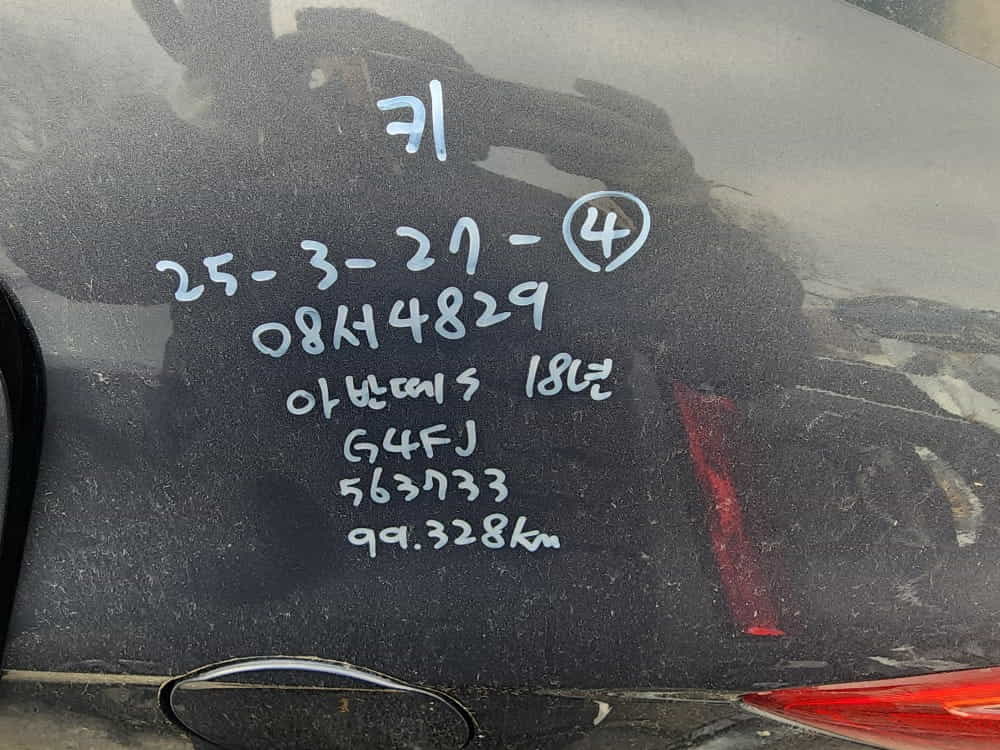 키
25-3-27-④
08서4829
아반떼s 18년
G4FJ
563733
99.328km